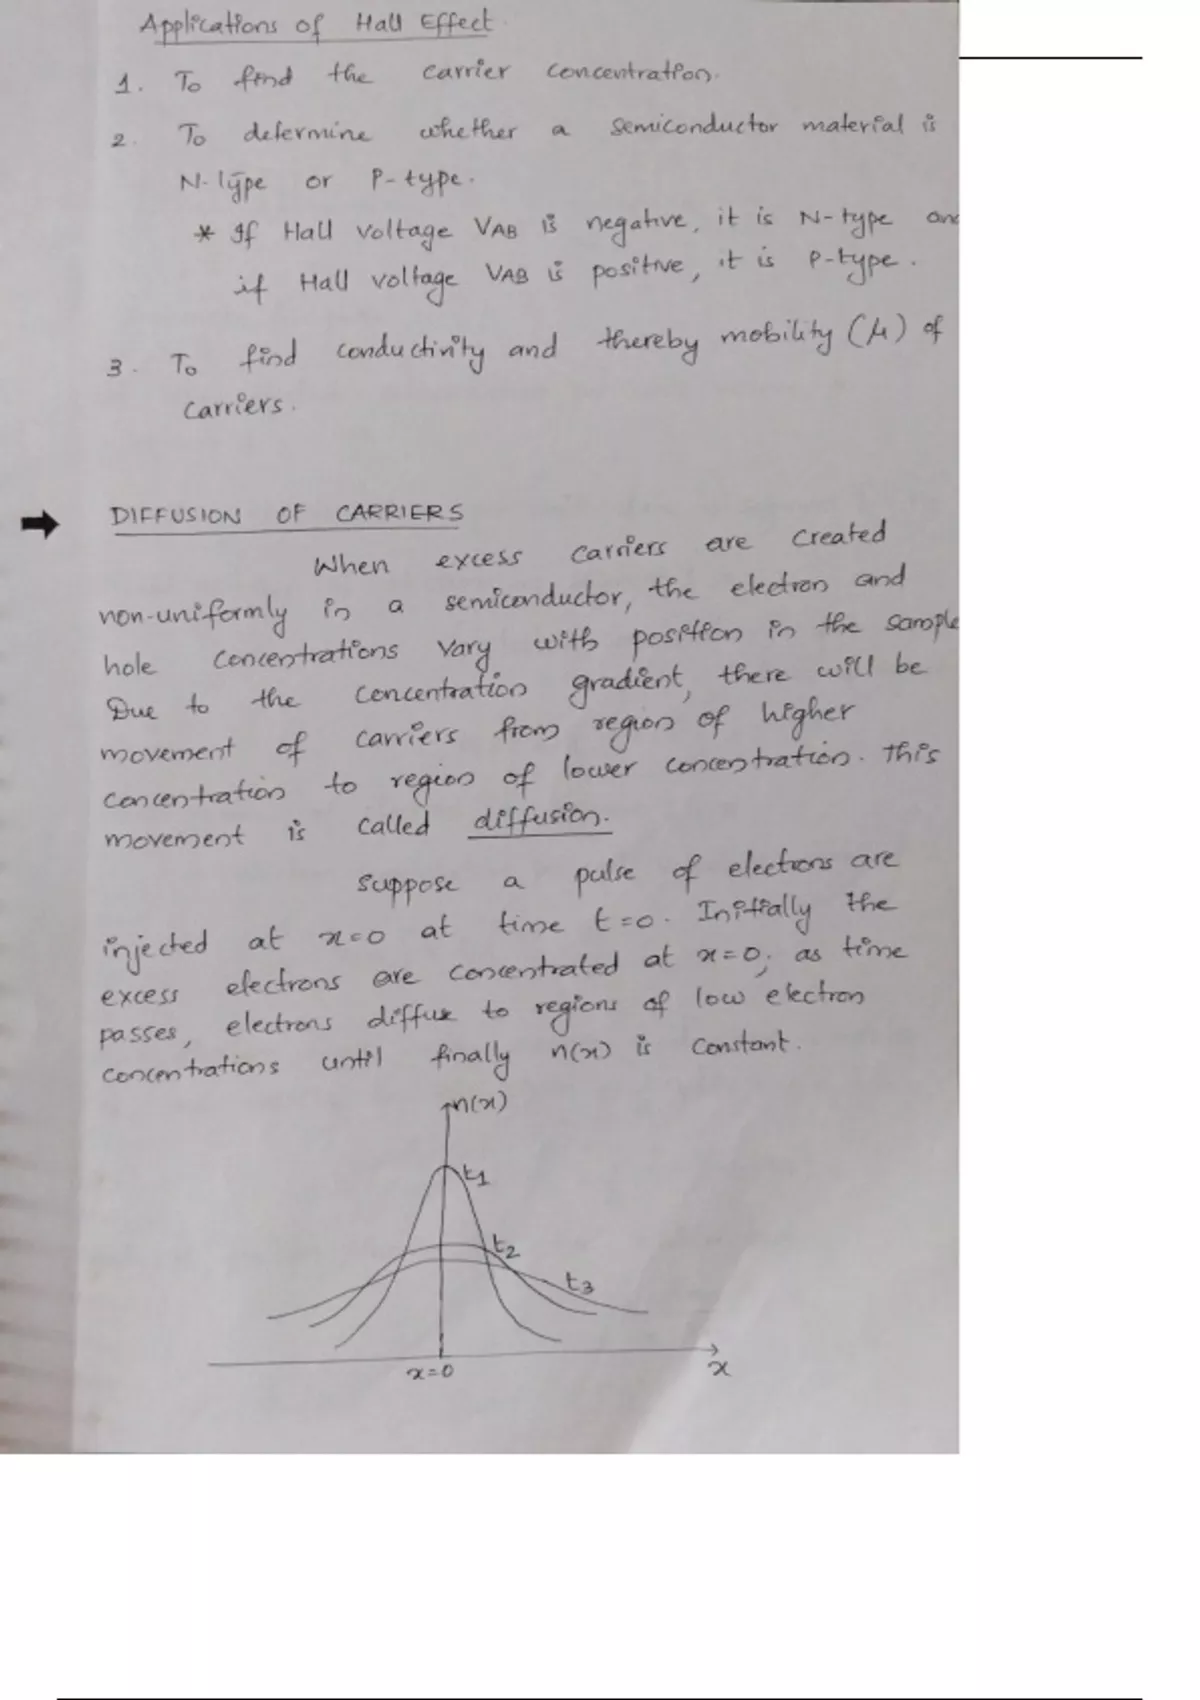 Applications of Hall Effect.
1. To find the carrier concentration.
2. To determine whether a semiconductor material is
N-type or P-type.
* If Hall voltage VAB is negative, it is N-type and
if Hall voltage VAB is positive, it is P-type.
3. To find conductivity and thereby mobility (μ) of
carriers.
DIFFUSION OF CARRIERS
When excess carriers are created
non-uniformly in a semiconductor, the electron and
hole concentrations vary with position in the sample
Due to the concentration gradient, there will be
movement of carriers from region of higher
concentration to region of lower concentration. This
movement is called diffusion.
Suppose a pulse of electrons are
injected at x=0 at time t=0. Initially the
excess electrons are concentrated at x=0; as time
passes, electrons diffuse to regions of low electron
concentrations until finally n(x) is constant.
n(x)
t1
t2
t3
x=0 x